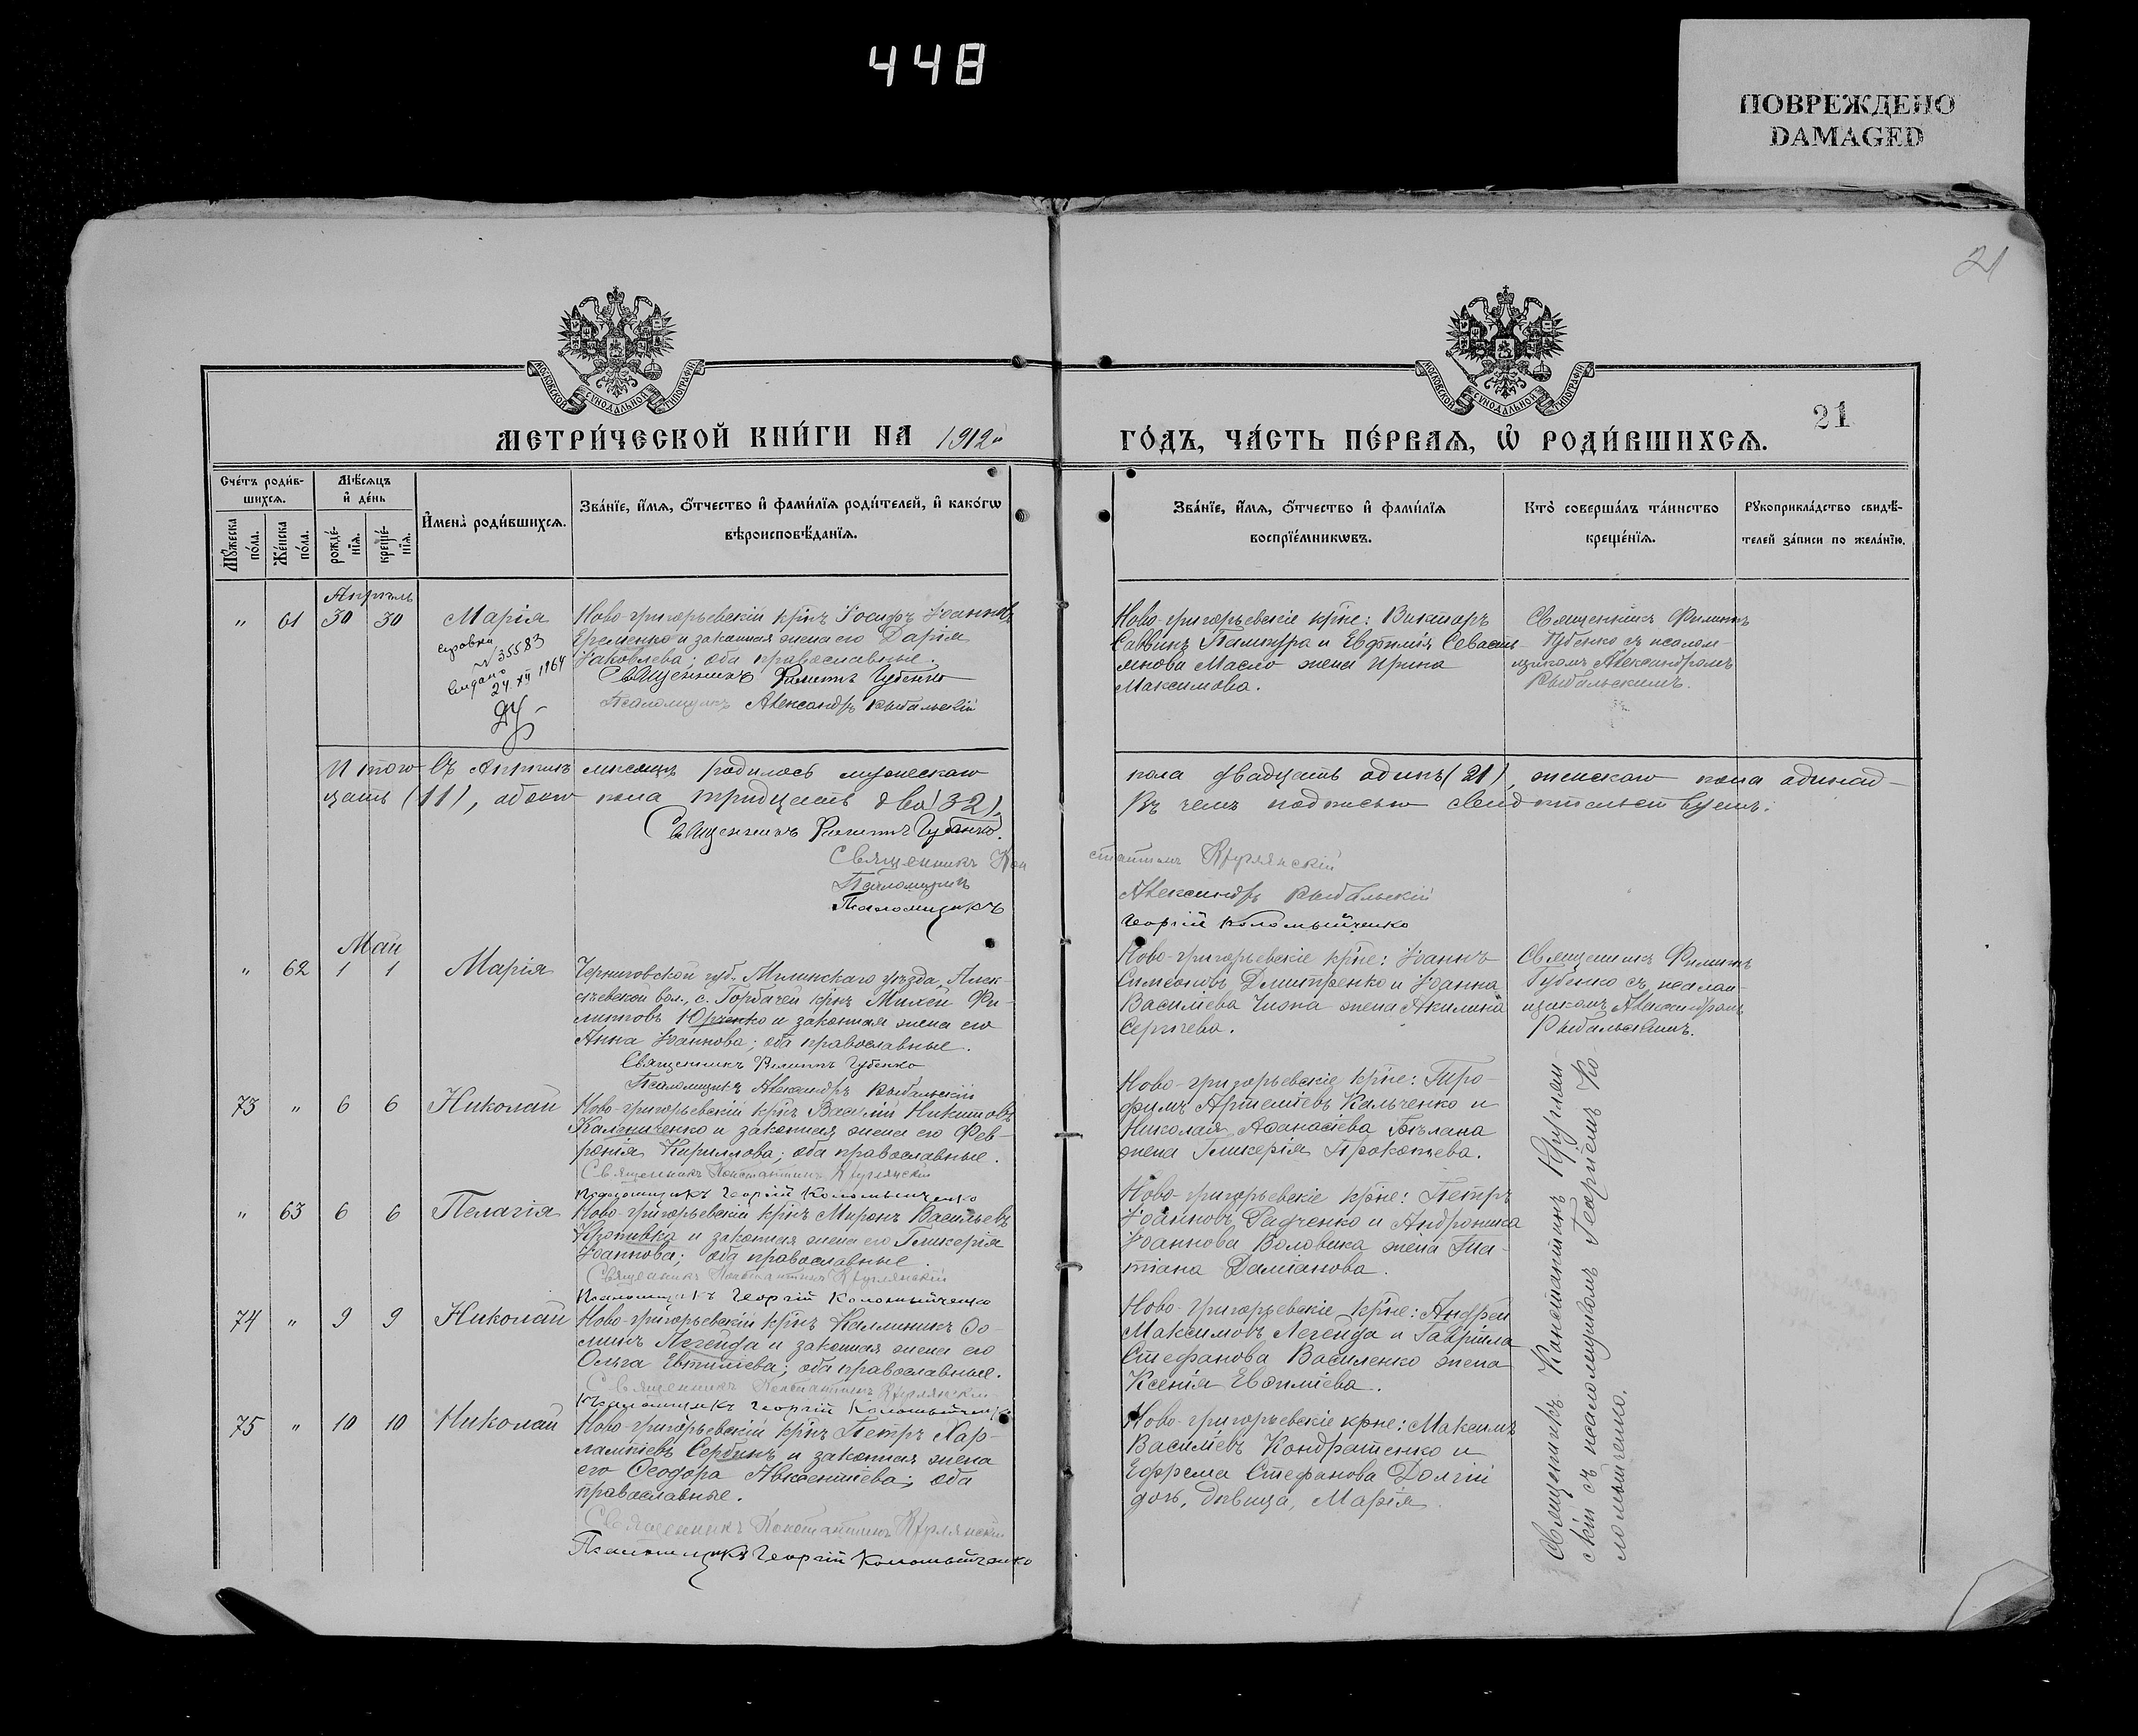 448
ПОВРЕЖДЕНО
DAMAGED
21
МОСКОВСКОЙ СѴНОДАЛЬНОЙ ТИПОГРАФІИ
МОСКОВСКОЙ СѴНОДАЛЬНОЙ ТИПОГРАФІИ
МЕТРИ́ЧЕСКОЙ КНИ́ГИ НА 1912й
ГО́ДЪ, ЧА́СТЬ ПЕ́РВАѦ, Ѡ҆ РОДИ́ВШИХСѦ.
21
Сче́тъ роди́в-
шихсѧ.
Мѣ́сѧцъ
и҆ де́нь
Мꙋ́жеска
по́ла.
Же́нска
по́ла.
рожде́-
нїѧ.
креще́-
нїѧ.
И҆мена̀ роди́вшихсѧ.
Зва́нїе, и҆́мѧ, ѻ҆́тчество и҆ фами́лїѧ роди́телей, и҆ како́гѡ
вѣроисповѣ́данїѧ.
Зва́нїе, и҆́мѧ, ѻ҆́тчество и҆ фами́лїѧ
воспрїе́мникѡвъ.
Кто̀ соверша́лъ та́инство
креще́нїѧ.
Рꙋкоприкла́дство свидѣ́-
телей за́писи по жела́нїю.
Апрѣль
" 61 30 30 Марія
справка
№ 35583
видано
24.XII 1964
Ново-григорьевскій крнъ Іосифъ Іоанновъ
Еременко и законная жена его Дарія
Іаковлева; оба православные.
Священникъ Филиппъ Губенко
Псаломщикъ Александръ Рыбальскій
Ново-григорьевскіе крне: Викторъ
Саввинъ Паланура и Евфимія Севасть-
янова Масло жена Ирина
Максимова.
Священникъ Филиппъ
Губенко съ псалом-
щикомъ Александромъ
Рыбальскимъ.
Итого въ Апрѣлѣ мѣсяцѣ родилось мужескаго
пола двадцать одинъ (21), женскаго пола одинад-
цать (11), обоего пола тридцать два (32).
Въ чемъ подписью свидѣтельствуемъ:
Священникъ Филиппъ Губенко.
Священникъ Кон
стантинъ Круглянскій
Псаломщикъ
Александръ Рыбальскій
Псаломщикъ
Георгій Коломыйченко
Май
" 62 1 1 Марія
Черниговской губ. Мглинскаго уѣзда, Алек-
сѣевской вол., с. Горбачей крнъ Михей Фи-
липповъ Юрченко и законная жена его
Анна Іоаннова; оба православные.
Священникъ Филиппъ Губенко
Псаломщикъ Александръ Рыбальскій
Ново-григорьевскіе крне: Іоаннъ
Симеоновъ Дмитренко и Іоанна
Василіева Чижа жена Акилина
Сергѣева.
Священникъ Филиппъ
Губенко съ псалом-
щикомъ Александромъ
Рыбальскимъ.
73 " 6 6 Николай
Ново-григорьевскій крнъ Василій Никитовъ
Калениченко и законная жена его Фев-
ронія Кириллова; оба православные.
Священникъ Константинъ Круглянскій
Псаломщикъ Георгій Коломыйченко
Ново-григорьевскіе крне: Тро-
фимъ Артеміевъ Кальченко и
Николая Аѳанасіева Бѣлана
жена Гликерія Прокопьева.
" 63 6 6 Пелагія
Ново-григорьевскій крнъ Миронъ Васильевъ
Кропивка и законная жена его Гликерія
Іоаннова; оба православные.
Священникъ Константинъ Круглянскій
Псаломщикъ Георгій Коломыйченко
Ново-григорьевскіе крне: Петръ
Іоанновъ Радченко и Андроника
Іоаннова Воловика жена Та-
тіана Даміанова.
74 " 9 9 Николай
Ново-григорьевскій крнъ Каллиникъ Ѳо-
минъ Легейда и законная жена его
Ольга Евтиміева; оба православные.
Священникъ Константинъ Круглянскій
Псаломщикъ Георгій Коломыйченко
Ново-григорьевскіе крне: Андрей
Максимовъ Легейда и Гавріила
Стефанова Василенко жена
Ксенія Евѳиміева.
75 " 10 10 Николай
Ново-григорьевскій крнъ Петръ Хар-
лампіевъ Сербинъ и законная жена
его Ѳеодора Авксентіева; оба
православные.
Священникъ Константинъ Круглянскій
Псаломщикъ Георгій Коломыйченко
Ново-григорьевскіе крне: Максимъ
Василіевъ Кондратенко и
Ефрема Стефанова Долгій
дочь, дѣвица, Марія.
Священникъ Константинъ Круглян-
скій съ псаломщикомъ Георгіемъ Ко-
ломыйченко.